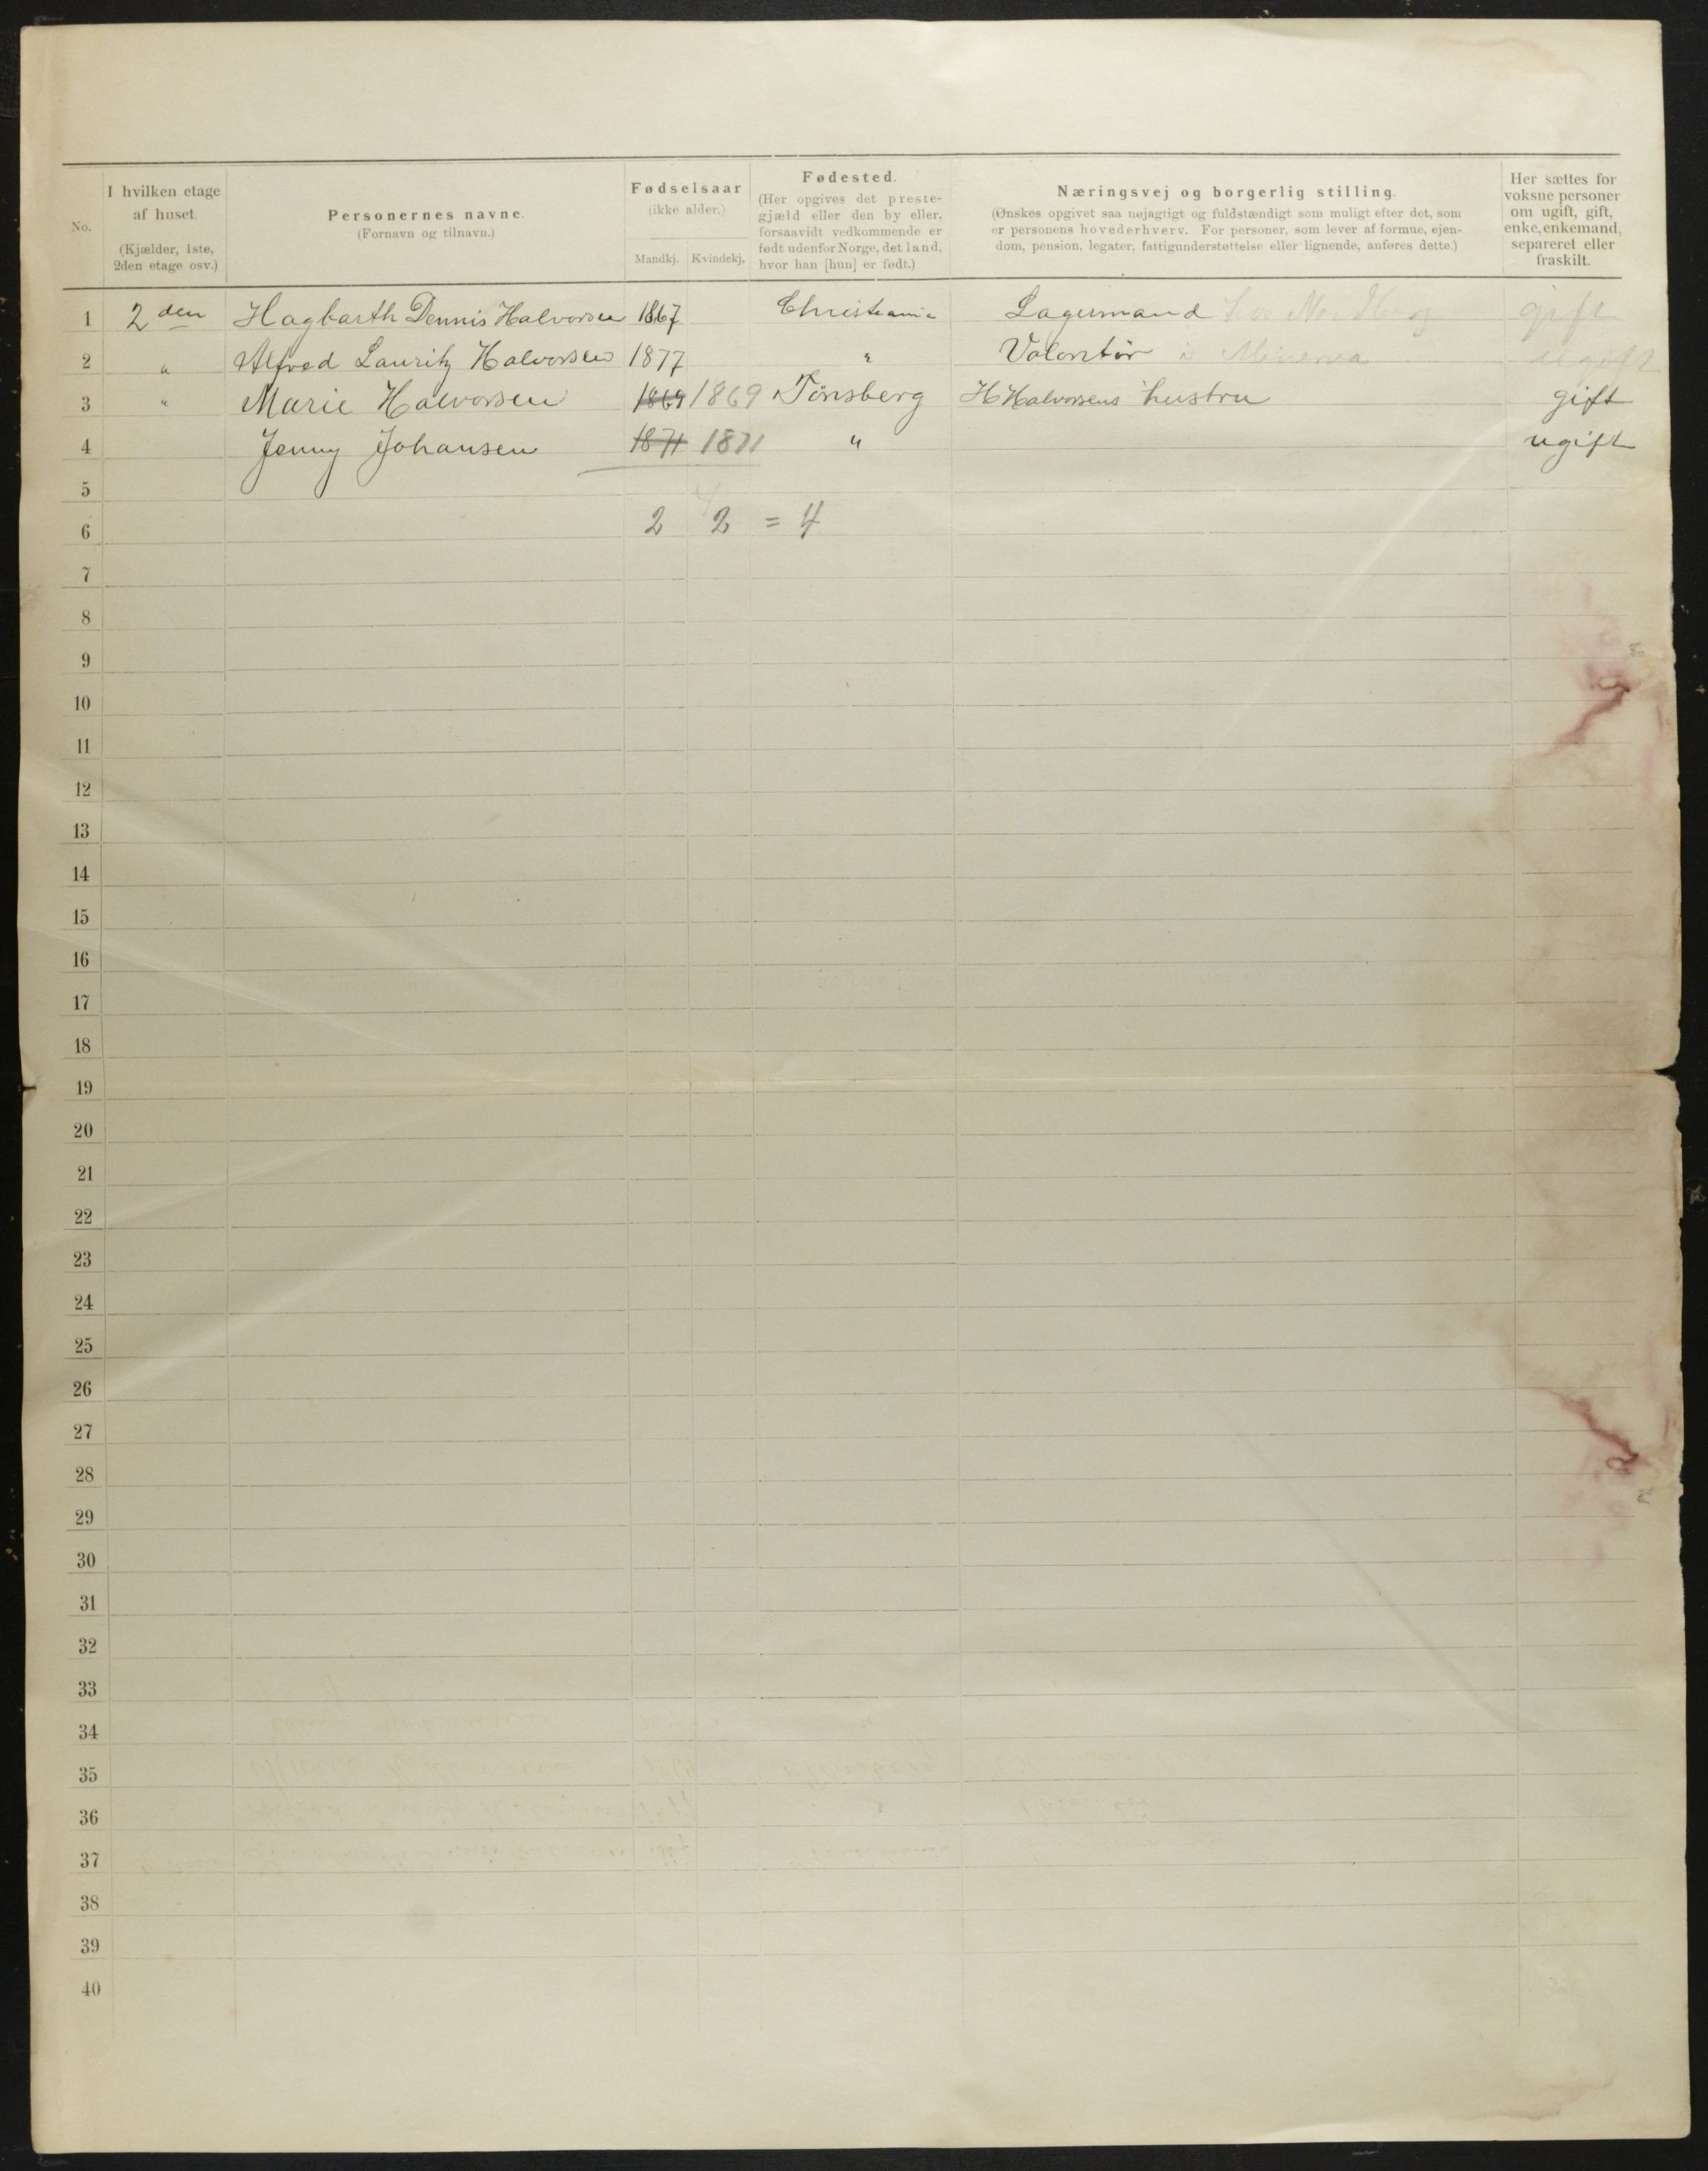 No.
I hvilken etage
af huset.
(Kjælder, 1ste,
2den etage osv.)
Personernes navne.
(Fornavn og tilnavn.)
Fødselsaar
(ikke alder.)
Mandkj. Kvindekj.
Fødested.
(Her opgives det preste-
gjæld eller den by eller,
forsaavidt vedkommende er
født udenfor Norge, det land,
hvor han [hun] er født.)
Næringsvej og borgerlig stilling.
(Ønskes opgivet saa nøjagtigt og fuldstændigt som muligt efter det, som
er personens hovederhverv. For personer, som lever af formue, ejen-
dom, pension, legater, fattigunderstøttelse eller lignende, anføres dette.)
Her sættes for
voksne personer
om ugift, gift,
enke, enkemand,
separeret eller
fraskilt.
1 2den Hagbarth Dennis Halvorsen 1867 Christiania Lagermand hos gift
2 " Alfred Lauritz Halvorsen 1877 " Volontør i Minerva ugift
3 " Marie Halvorsen 1869 1869 Tønsberg H Halvorsens hustru gift
4 Jenny Johansen 1871 1871 " ugift
5
6 2 2 = 4
7
8
9
10
11
12
13
14
15
16
17
18
19
20
21
22
23
24
25
26
27
28
29
30
31
32
33
34
35
36
37
38
39
40